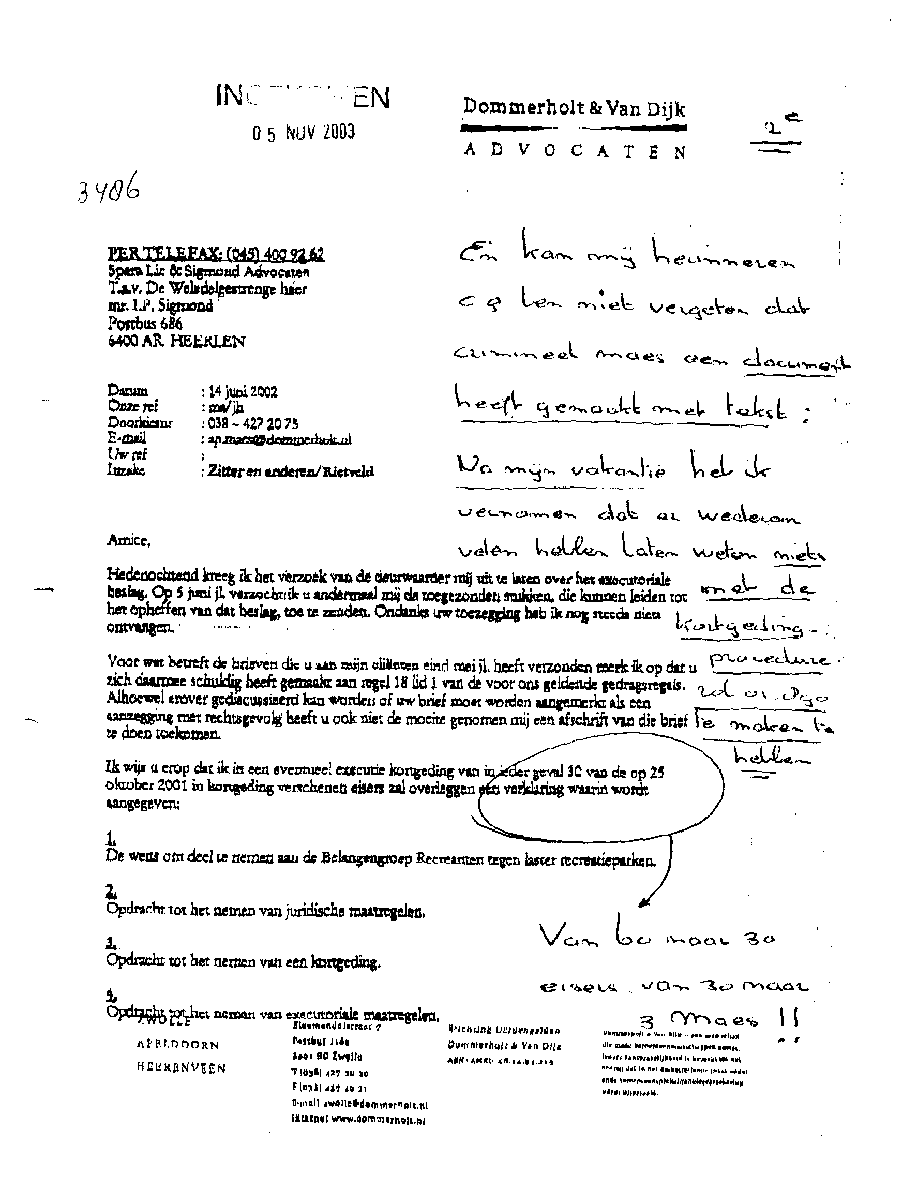 05 NOV 2003
Dommerholt & Van Dijk
ADVOCATEN
2e
3406
PER TELEFAX: (045) 400 92 62
& Sigmond Advocaten
T.a.v. De Weledelgestrenge heer
mr. I.P. Sigmond
Postbus 686
6400 AR HEERLEN
Datum : 14 juni 2002
Onze ref : ma/jh
Doorkiesnr : 038 - 427 20 75
E-mail : ap.maes@dommerholt.nl
Uw ref :
Inzake : Zitter en anderen/Rietveld
En kan mij herinneren
cq ben niet vergeten dat
crimineel maes een document
heeft gemaakt met tekst:
Na mijn vakantie heb ik
vernomen dat er wederom
velen hebben laten weten niets
met de
kortgeding-
procedure
te maken te
hebben
Amice,
Hedenochtend kreeg ik het verzoek van de deurwaarder mij uit te laten over het executoriale
beslag. Op 5 juni jl. verzocht ik u andermaal mij de toegezonden stukken, die kunnen leiden tot
het opheffen van dat beslag, toe te zenden. Ondanks uw toezegging heb ik nog steeds niets
ontvangen.
Voor wat betreft de brieven die u aan mijn cliënten eind mei jl. heeft verzonden merk ik op dat u
zich daarmee schuldig heeft gemaakt aan regel 18 lid 1 van de voor ons geldende gedragsregels.
Alhoewel erover gediscussieerd kan worden of uw brief moet worden aangemerkt als een
aanzegging met rechtsgevolg heeft u ook niet de moeite genomen mij een afschrift van die brief
te doen toekomen.
Ik wijs u erop dat ik in een eventueel executie kortgeding van in ieder geval 30 van de op 25
oktober 2001 in kortgeding verschenen eisers zal overleggen een verklaring waarin wordt
aangegeven:
1.
De wens om deel te nemen aan de Belangengroep Recreanten tegen laster recreatieparken.
2.
Opdracht tot het nemen van juridische maatregelen.
3.
Opdracht tot het nemen van een kortgeding.
Opdracht tot het nemen van executoriale maatregelen.
Van 60 naar 30
eisers van 30 naar
3 Maes !!
ZWOLLE
APELDOORN
HEERENVEEN
Postbus
Zwolle
E-mail zwolle@dommerholt.nl
Internet www.dommerholt.nl
Stichting Derdengelden
Dommerholt & Van Dijk